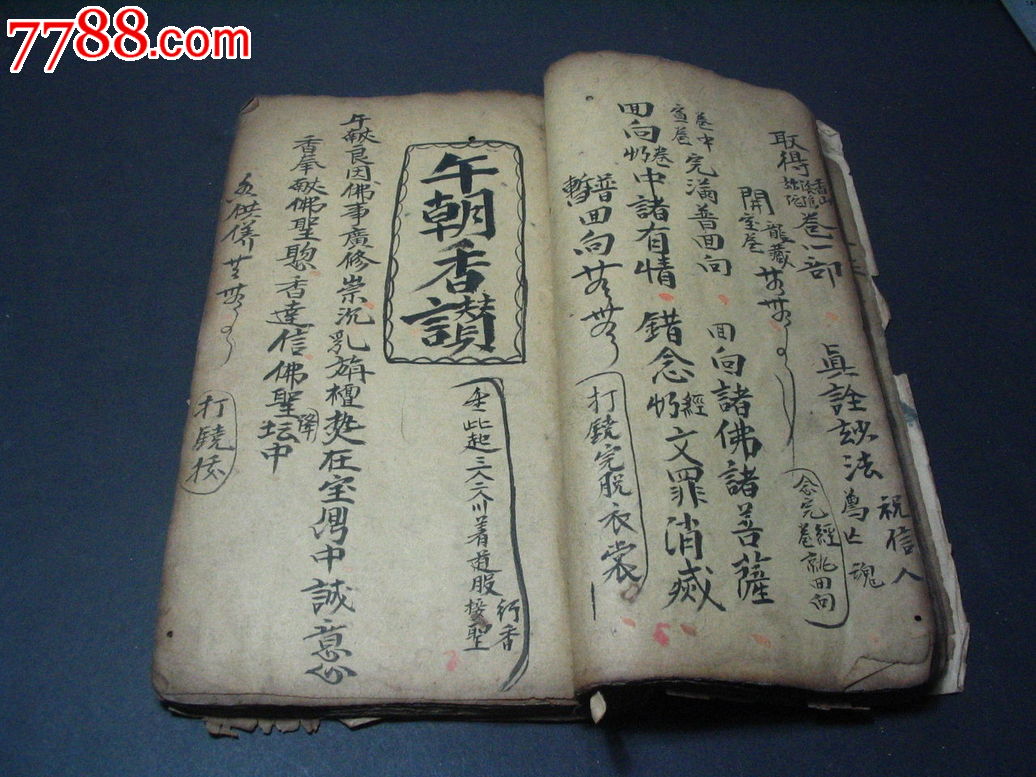 7788.com
取得香山卷一部 真詮玅法 祝信人
薦亡魂
開龍藏
宣卷
念完經卷就回向
卷中完滿普回向 回向諸佛諸菩薩
宣卷
回向卷中諸有情 錯念經文罪消滅
普回向
打鐃完脫衣裳
午朝香讚
至此起三人着道服接聖
行香
午献良因佛事廣修崇沉乳旃檀𤏐在宝炉中誠意
香奉献佛聖聞香達信佛聖降坛中
香供養
打鐃